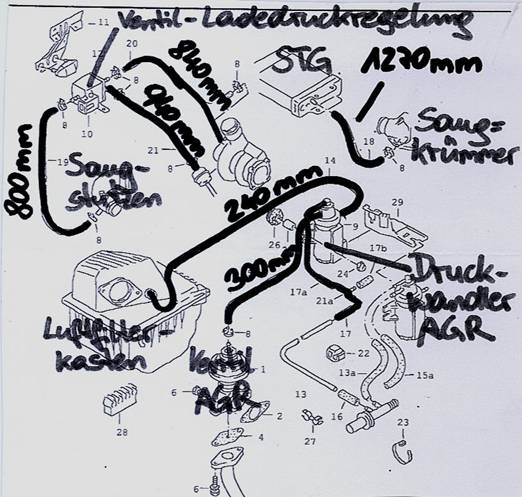 11
Ventil-Ladedruckregelung
20
8
10
8
21
8
840mm
940mm
8
STG
1270mm
18
8
Saug=
krümmer
800mm
19
Saug-
stutzen
8
14
240mm
9
29
26
17b
24
300mm
17a
21a
17
Druck-
wandler
AGR
Luftfilter-
kasten
8
Ventil
AGR
1
6
2
4
6
28
13
27
22
13a
15a
16
23